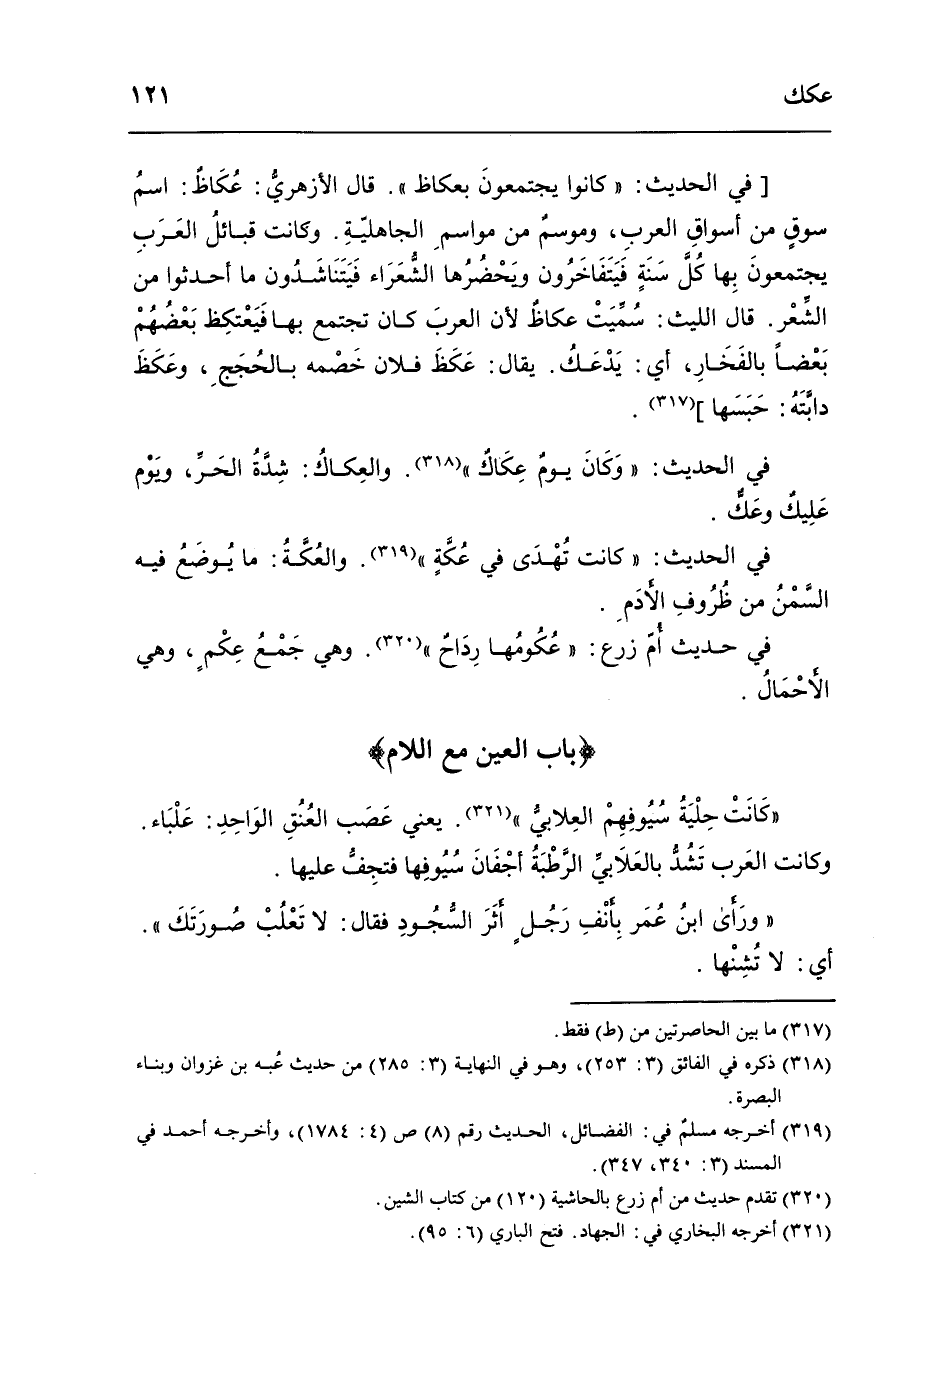 عكك ١٢١
[ في الحديث: « كانوا يجتمعونَ بعكاظ ». قال الأزهريُّ: عُكَاظٌ: اسمُ
سوقٍ من أسواقِ العربِ، وموسمٌ من مواسمِ الجاهليّةِ. وكانت قبائلُ العَرَبِ
يجتمعونَ بِها كُلَّ سَنَةٍ فَيَتَفَاخَرُون ويَحْضُرُها الشُّعَرَاء فَيَتَنَاشَدُون ما أحدثوا من
الشِّعْر. قال الليث: سُمِّيَتْ عكاظٌ لأن العربَ كان تجتمع بها فَيَعْتكِظ بَعْضُهُمْ
بَعْضاً بالفَخَارِ، أي: يَدْعَكُ. يقال: عَكَظَ فلان خَصْمه بالحُجَجِ، وعَكَظَ
دابَّتَهُ: حَبَسَها ](٣١٧) .
في الحديث: « وَكَانَ يومُ عِكَاكٌ »(٣١٨). والعِكاكُ: شِدَّةُ الحَرِّ، ويَوْم
عَلِيكٌ وعَكٌّ .
في الحديث: « كانت تُهْدَى في عُكَّةٍ »(٣١٩). والعُكَّةُ: ما يُوضَعُ فيه
السَّمْنُ من ظُرُوفِ الأَدَمِ .
في حديث أُمّ زرع: « عُكُومُها رِدَاحٌ »(٣٢٠). وهي جَمْعُ عِكْمٍ، وهي
الأَحْمَالُ .
﴿باب العين مع اللام﴾
«كَانَتْ حِلْيَةُ سُيُوفِهِمْ العِلابيُّ »(٣٢١). يعني عَصَب العُنُقِ الوَاحِدِ: عَلْبَاء.
وكانت العَرب تَشُدُّ بالعَلَابيِّ الرَّطْبَةُ أجْفَانَ سُيُوفِها فتجِفُّ عليها .
« ورَأَىٰ ابنُ عُمَر بِأَنْفِ رَجُلٍ أَثَرَ السُّجُودِ فقال: لا تَعْلُبْ صُورَتَكَ ».
أي: لا تُشِنْها .
(٣١٧) ما بين الحاصرتين من (ط) فقط.
(٣١٨) ذكره في الفائق (٣: ٢٥٣)، وهو في النهاية (٣: ٢٨٥) من حديث عُبه بن غزوان وبناء
البصرة.
(٣١٩) أخرجه مسلمٌ في: الفضائل، الحديث رقم (٨) ص (٤: ١٧٨٤)، وأخرجه أحمد في
المسند (٣: ٣٤٠، ٣٤٧).
(٣٢٠) تقدم حديث من أم زرع بالحاشية (١٢٠) من كتاب الشين.
(٣٢١) أخرجه البخاري في: الجهاد. فتح الباري (٦: ٩٥).